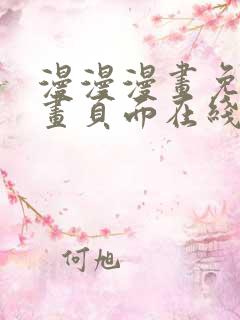 漫漫漫畫免
畫頁面在綫
何旭